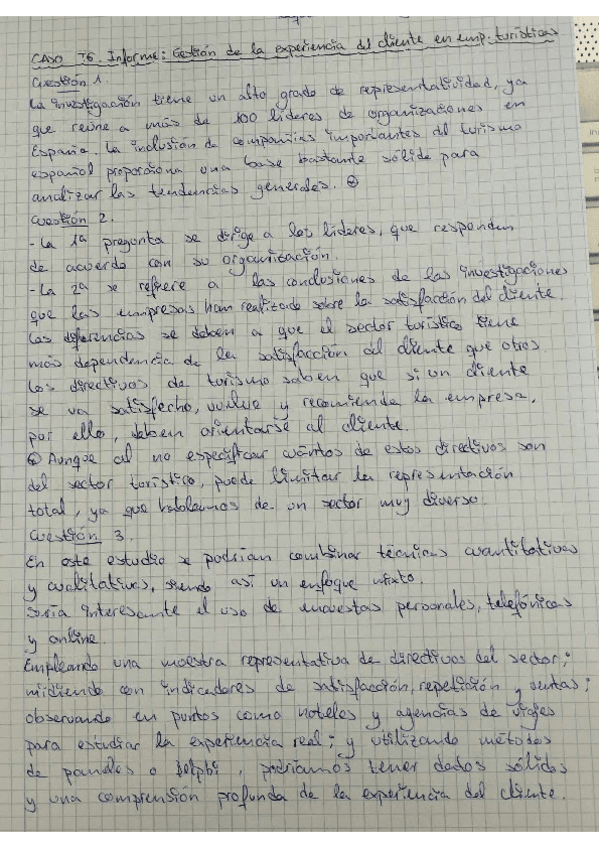 CASO T6. Informe: Gestión de la experiencia del cliente en emp. turísticas
Cuestión 1.
La investigación tiene un alto grado de representatividad, ya
que reúne a más de 100 líderes de organizaciones en
España. La inclusión de compañías importantes del turismo
español proporciona una base bastante sólida para
analizar las tendencias generales.
Cuestión 2.
- La 1ª pregunta se dirige a los líderes, que responden
de acuerdo con su organización.
- La 2ª se refiere a las conclusiones de las investigaciones
que las empresas han realizado sobre la satisfacción del cliente.
Las diferencias se deben a que el sector turístico tiene
más dependencia de la satisfacción del cliente que otros
Los directivos de turismo saben que si un cliente
se va satisfecho, vuelve y recomienda la empresa,
por ello, deben orientarse al cliente.
Aunque al no especificar cuántos de estos directivos son
del sector turístico, puede limitar la representación
total, ya que hablamos de un sector muy diverso.
Cuestión 3.
En este estudio se podrían combinar técnicas cuantitativas
y cualitativas, siendo así un enfoque mixto.
Sería interesante el uso de encuestas personales, telefónicas
y online.
Empleando una muestra representativa de directivos del sector;
midiendo con indicadores de satisfacción, repetición y ventas;
observando en puntos como hoteles y agencias de viajes
para estudiar la experiencia real; y utilizando métodos
de paneles o Delphi, podríamos tener datos sólidos
y una comprensión profunda de la experiencia del cliente.